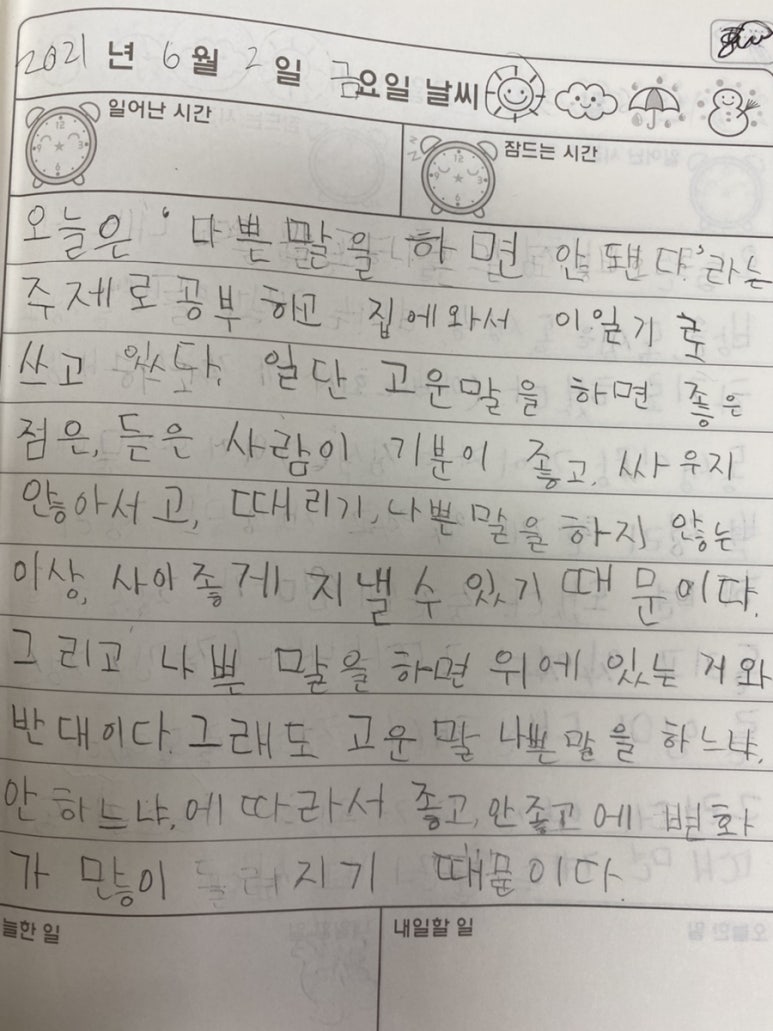 2021 년 6 월 2 일 금요일 날씨
일어난 시간
잠드는 시간
오늘은 '나쁜 말을 하면 안됀다.'라는
주제로 공부하고 집에와서 이일기
쓰고 있다. 일단 고운말을 하면 좋은
점은, 듣은 사람이 기분이 좋고, 싸우지
않아서고, 때리기, 나쁜 말을 하지 않는
이상, 사이좋게 지낼 수 있기 때문이다.
그리고 나쁜 말을 하면 위에 있는 거와
반대이다. 그래도 고운 말 나쁜말을 하느냐,
안하느냐, 에 따라서 좋고, 안좋고에 변화
가 많이 지기 때문이다.
늘한 일
내일할 일